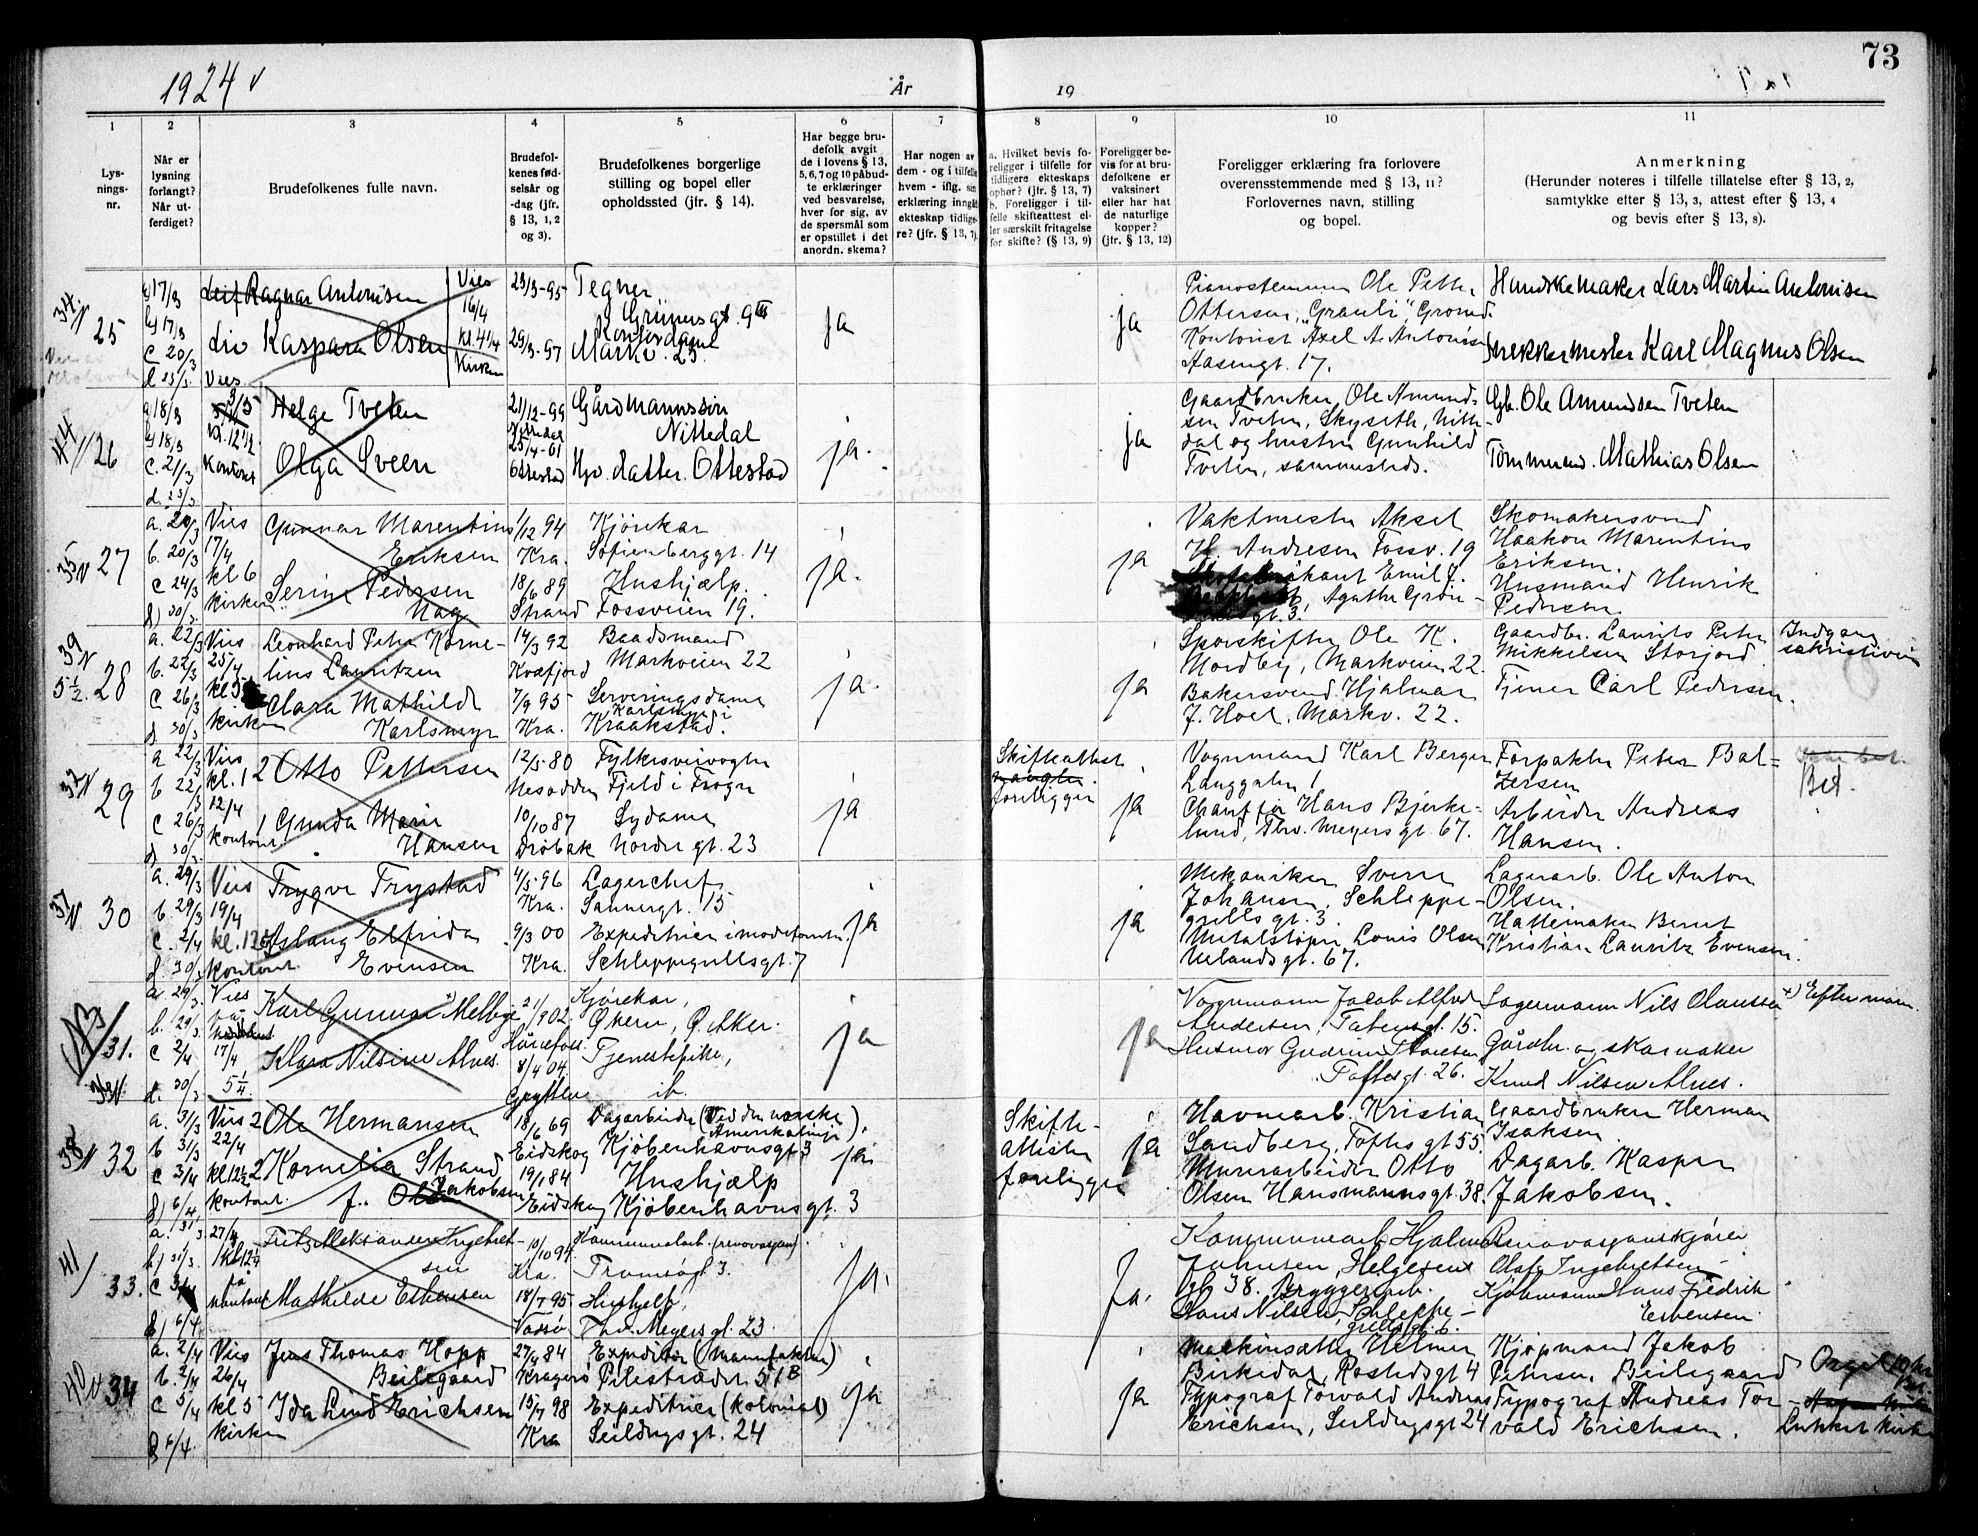 73
1924
År
19
1
2
3
4
5
6
7
8
9
10
11
Lys-
nings-
nr.
Når er
lysning
forlangt?
Når ut-
ferdiget?
Brudefolkenes fulle navn.
Brudefol-
kenes fød-
selsår og
-dag (jfr.
§ 13, 1, 2
og 3).
Brudefolkenes borgerlige
stilling og bopel eller
opholdssted (jfr. § 14).
Har begge bru-
defolk avgit
de i lovens § 13,
5, 6, 7 og 10 påbud-
te erklæringer
ved besvarelse,
hver for sig, av
de spørsmål som
er opstillet i det
anordn. skema?
Har nogen av
dem - og i tilfelle
hvem - iflg. sin
erklæring inngått
ekteskap tidlige-
re? (jfr. § 13, 7).
a. Hvilket bevis fo-
religger i tilfelle for
tidligere ekteskaps
ophør? (jfr. § 13, 7)
b. Foreligger i til-
felle skifteattest el-
ler særskilt fritagelse
for skifte? (§ 13, 9)
Foreligger be-
vis for at bru-
defolkene er
vaksinert
eller har hat
de naturlige
kopper?
(jfr. § 13, 12)
Foreligger erklæring fra forlovere
overensstemmende med § 13, 11?
Forlovernes navn, stilling
og bopel.
Anmerkning
(Herunder noteres i tilfelle tillatelse efter § 13, 2,
samtykke efter § 13, 3, attest efter § 13, 4
og bevis efter § 13, 8).
25
17/3
17/3
c 20/3
Vies
Leif Ragnar Antonisen
Liv Kaspara Olsen
Vies
16/4
kl. 4 1/4
Kirken
23/3-95
29/3-97
Tegner
Grünersgt. 9 III
Kontordame
Markv. 23.
ja
ja
Ole Petter
Ottersen, "Granli",
Kontorist Axel A. Antonisen
Aasengt. 17.
Hanskemaker Lars Martin Antonisen
Karl Magnus Olsen
26
18/3
18/3
c. 21/3
Kontoret
Helge Tveten
Olga Sveen
21/12-99
Nittedal
25/4-01
Ottestad
Gårdmannssøn
Nittedal
datter. Ottestad
ja.
ja
Gaardbruker Ole Amund-
sen Tveten, Skyseth, Nitte-
dal og hustru Gunhild
Tveten, sammesteds.
Gb. Ole Amundsen Tveten
Tømmermd. Mathias Olsen
35
27
a. 20/3
b. 20/3
c 24/3
Vies
17/4
kl 6
kirken
Gunnar Marentius
Eriksen
Serine Pedersen
Hag
1/12 94
Kra.
18/6 89
Strand
Kjørekar
Sofienberggt. 14
Hushjælp.
Fossveien 19.
ja.
ja
Vaktmester Aksel
H. Andresen Fossv. 19
Emil J.
Agathe Grøn-
3.
Skomakersvend
Haakon Marentius
Eriksen.
Husmand Henrik
Pedersen.
39
5 1/2.
28
a. 22/3
b. 22/3
c 26/3
d. 30/3
Vies
25/4
kirken
Leonhard Peter Korne-
lius Lauritzen
Clara Mathilde
Karlsmyr
14/3 92
Kvæfjord
7/9 95
Kra.
Baadsmand
Markveien 22
Serveringsdame
Kraakstad.
ja.
ja
Sporskifter Ole K.
Nordby, Markveien 22.
Bakersvend Hjalmar
J. Hoel, Markv. 22.
Gaardbr. Laurits Peter
Mikkelsen Storjord.
Tjener Carl Pedersen.
Indgang
sakristiveien
29
a 22/3
b 22/3
c 26/3
Vies
kl. 12
12/4
kontoret
Otto Pettersen
Gunda Marie
Hansen
12/5-80
Nesodden
10/10 87
Drøbak
Fylkesveivogter
Fjeld i Frogn
Sydame
Nordre gt. 23
ja
Skifteattest
mangler
foreligger
ja
Vognmand Karl Bergen
Langgaten 1
Chauffør Hans Bjerke-
lund, Thv. Meyersgt. 67.
Forpakter Peter Bal-
zersen
Arbeider Andreas
Hansen.
Bet.
37
30
a. 29/3
b. 29/3
c. 2/4
Vies
19/4
kontoret
Trygve Trystad
Aslaug Elfrida
Evensen
4/5 96
Kra.
9/3 00
Kra.
Lagerchef
Sannergt. 15
Expeditrice i
Schleppegrellsgt. 7
ja
ja
Mekaniker Sverre
Johansen, Schleppe-
grellsgt. 3
Metalstøper Louis Olsen
Uelandsgt. 67.
Lagerarb. Ole Anton
Olsen.
Hattemaker Bernt
Kristian Lauritz Evensen.
NB
31.
36
a. 29/3.
b. 29/3.
c 2/4
d. 30/3
Vies
på
17/4
5 1/4
Karl Gunnar Melbye
Klara Nilsine Alnes.
21/9 02
Hønefoss.
8/4 04.
Grytten
Kjørekar,
Økern, Ø. Aker.
Tjenestepike,
ib.
ja
ja
Vognmann Jacob Alfred
Andersen, 15.
Husmor Gudrun
Toftesgt. 26.
Lagermann Nils Olaussen
Gårdbr. og skomaker
Knud Nilsen Alnes.
x) Efternavn
38
32
a. 31/3
b 31/3
c 3/4
6/4
Vies
22/4
kl 12 1/2
kontoret.
Ole Hermansen
Kornelia Strand
f. Jakobsen
18/6 69
Eidskog
19/1 84
Eidskog
Dagarbeider (Ved den norske
Amerikalinje).
Kjøbenhavnsgt. 3
Hushjælp
Kjøbenhavnsgt. 3
ja
Skifte-
attester
foreligger
ja
Havnearb. Kristian
Sandberg, Toftesgt 55.
Murerarbeider Otto
Olsen Hausmannsgt. 38.
Gaardbruker Herman
Isaksen.
Dagarb. Kasper
Jakobsen.
41
33.
a. 31/3
b) 31/3.
c 3/4
6/4
27/4
kl 12 1/4
på
kontoret
Fritz Aleksander Ingebret-
sen
Mathilde Erhensen
10/10 94.
Kra.
18/7 95
Kommunalarb. (renovasjon)
Tromsøgt. 3.
Hushjelp,
Thv. Meyersgt. 23.
ja.
Ja.
Kommunearb. Hjalmar
Johnsen, Helgesens
gt. 38. Bryggeriarb.
Hans Nilsen, Schleppe-
grellsgt. 6.
Renovasjonskjører
Olaf Ingebretsen
Kjøbmann Hans Fredrik
40
34
a. 2/4
b. 2/4
c 5/4
6/4.
Vies
26/4
kl 5
kirken
Jens Thomas Hopp
Beilegaard
Ida Lind Erichsen
27/4 84
Kragerø
15/7 98
Kra
Expeditør (manufaktur)
Pilestrædet 51 B
Expeditrice (kolonial)
Seildugsgt. 24
ja
ja
Maskinsætter Helmer
Birkedal, Rostedsgt 4
Typograf Torvald Andreas
Erichsen, Seildugsgt 24
Kjøpmand Jakob
Petersen Beilegaard
Typograf Andreas Tor-
vald Erichsen.
Orgel 10 kr
Lukket kirke